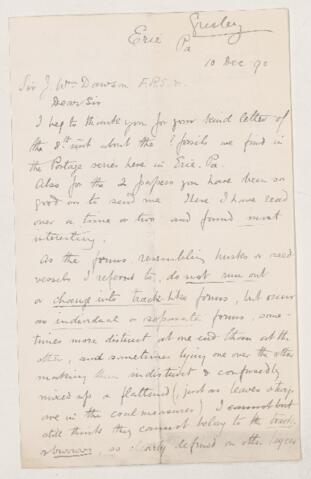 Gresley
Erie
Pa
10 Dec 90
Sir J. Wm Dawson F.R.S. &.
Dear Sir
I beg to thank you for your kind letter of
the 8th inst about the ? fossils we find in
the Portage series here in Erie. Pa.
Also for the 2 papers you have been so
good as to send me. These I have read
over a time or two and found most
interesting.
As the forms resembling husks or seed
vessels I referred to, do not run out
or change into track-like forms, but occur
as individual or separate forms, some-
times more distinct at one end than at the
other, and sometimes lying one over the other
making them indistinct & confusedly
mixed up & flattened, (just as leaves &
are in the coal measures) I cannot but
still think they cannot belong to the tracks
or burrows, so clearly defined on other layers